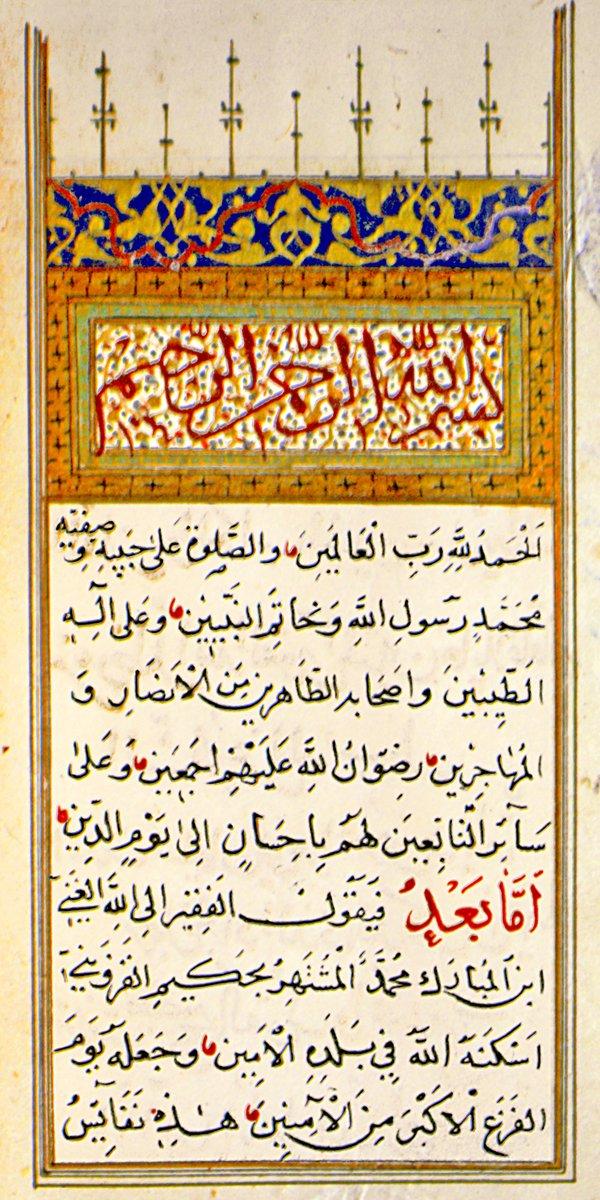 بسم الله الرحمن الرحيم
اَلْحَمدُ لِلَّهِ رَبِّ الْعَالَمِينَ والصَّلوة عَلىٰ حَبِيبِهِ وَ صَفِيِّهِ
مُحَمَّدٍ رَسولِ اللهِ وَخاتِمِ النَبِيّينَ وعَلى الِهِ
الطَّيِّبِينَ واصحَابه الطّاهرين مِنَ الْاَنصَارِ وَ
المُهاجِرِين رِضوَانُ اللهِ عَلَيهِمْ اجمَعِينَ وَعَلىٰ
سَآئِرِ التّابِعِينَ لهُم بِاِحسَانٍ الىٰ يَوْمِ الدّينِ
اَمَّا بَعْدُ فَيَقُولُ الفَقِيرُ الى اللهِ الغَنِيِّ
ابن المُبارَك مُحمَّد الْمُشتَهِرُ بحَكيمِ القَزوِينيّ
اَسْكنَهُ اللهُ فِي بَلَدِهِ الْاَمِينِ وَجَعَلَهُ يَوْمَ
الفَزَعِ الْاَكْبَرِ مِنَ الْآمِنِينَ هٰذِهِ نَفَائِسُ